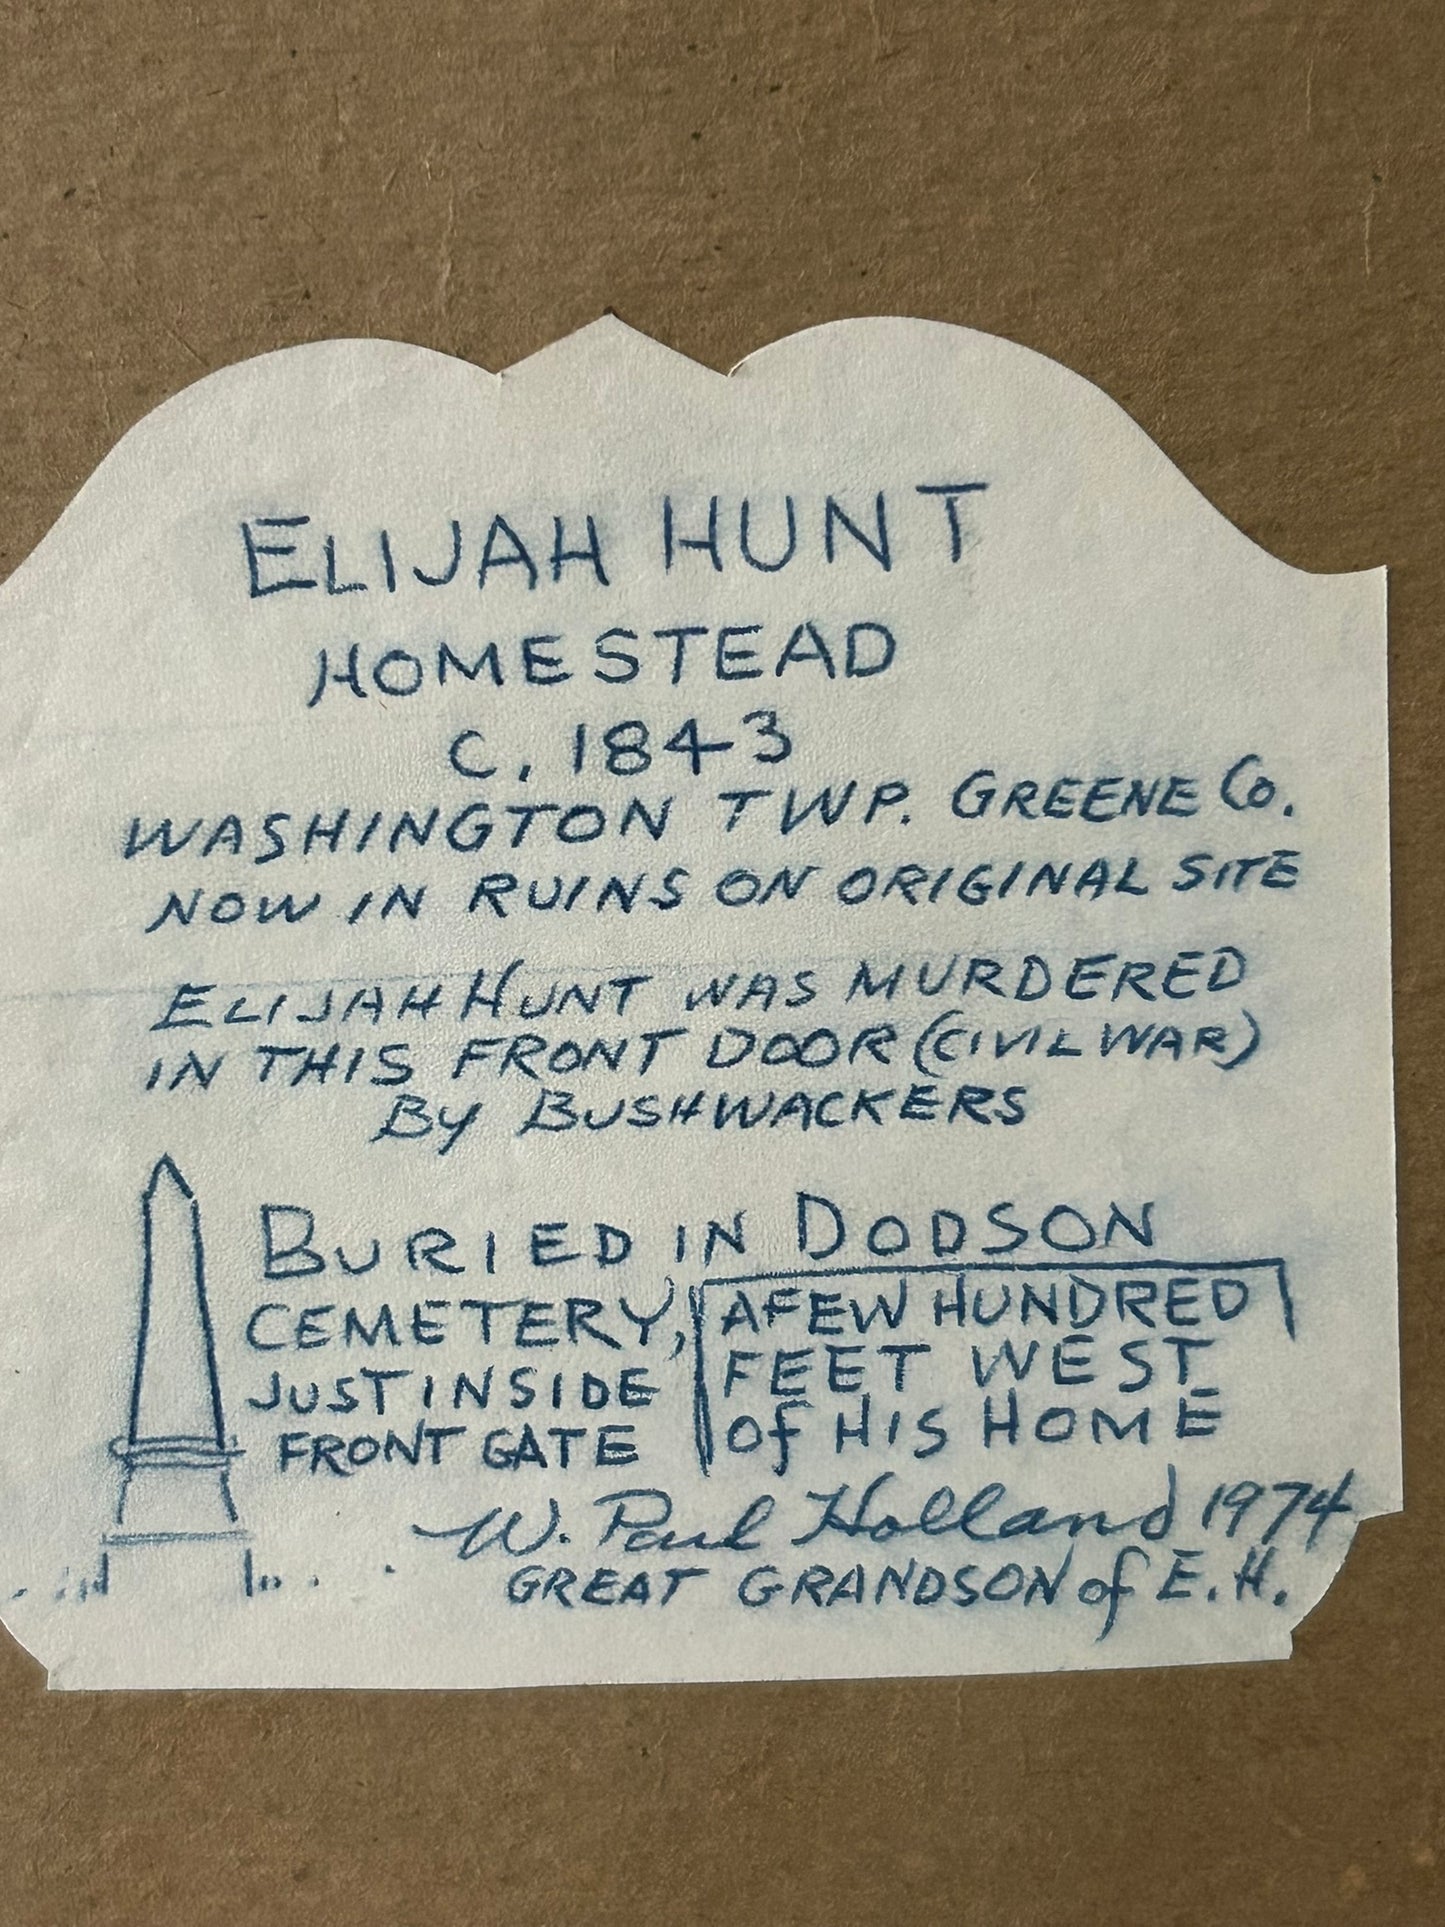 ELIJAH HUNT
HOMESTEAD
C. 1843
WASHINGTON TWP. GREENE CO.
NOW IN RUINS ON ORIGINAL SITE
ELIJAH HUNT WAS MURDERED
IN THIS FRONT DOOR (CIVIL WAR)
BY BUSHWACKERS
BURIED IN DODSON
CEMETERY,
JUST INSIDE
FRONT GATE
A FEW HUNDRED
FEET WEST
of HIS HOME
W. Paul Holland 1974
GREAT GRANDSON of E. H.